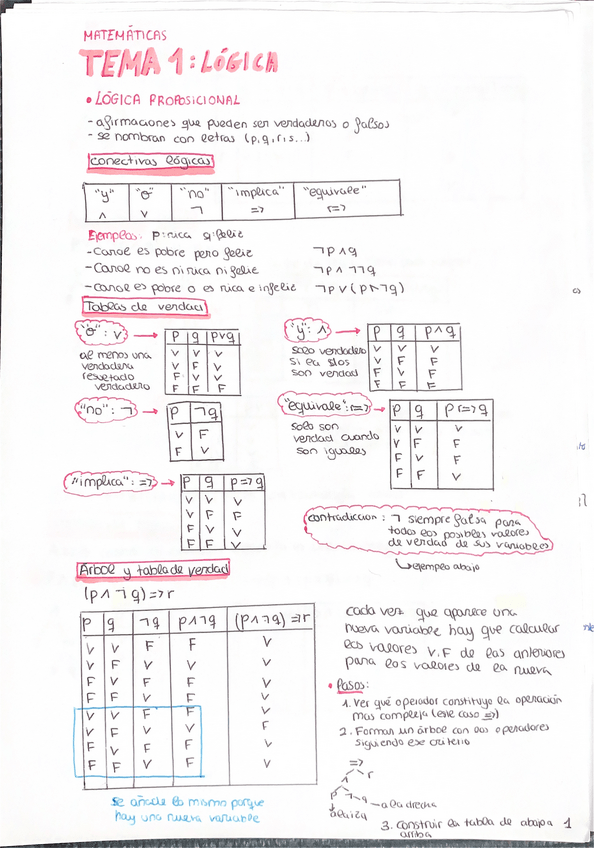 MATEMÁTICAS
TEMA 1: LÓGICA
• LÓGICA PROPOSICIONAL
- afirmaciones que pueden ser verdaderos o falsos
- se nombran con letras (p,q,r,s...)
conectivas lógicas
"y" "o" "no" "implica" "equivale"
∧ ∨ ¬ => <=>
Ejemplos: p:rica q:feliz
- Carol es pobre pero feliz ¬p∧q
- Carol no es ni rica ni feliz ¬p∧¬q
- Carol es pobre o es rica e infeliz ¬p∨(p∧¬q)
Tablas de verdad
"o": ∨
al menos una
verdadera
resultado
verdadero
p q p∨q
V V V
V F V
F V V
F F F
"y": ∧
solo verdadero
si ellos
son verdad
p q p∧q
V V V
V F F
F V F
F F F
"no": ¬
p ¬q
V F
F V
"equivale": <=>
solo son
verdad cuando
son iguales
p q p<=>q
V V V
V F F
F V F
F F V
"implica": =>
p q p=>q
V V V
V F F
F V V
F F V
contradiccion: ¬ siempre falsa para
todos los posibles valores
de verdad de sus variables
ejemplo abajo
Arbol y tabla de verdad
(p∧¬q)=>r
p q ¬q p∧¬q (p∧¬q)=>r
V V F F V
V F V V V
F V F F V
F F V F V
V V F F V
V F V V F
F V F F V
F F V F V
se añade lo mismo porque
hay una nueva variable
cada vez que aparece una
nueva variable hay que calcular
los valores V.F de las anteriores
para los valores de la nueva
• Pasos:
1. Ver qué operador constituye la operación
mas compleja (este caso =>)
2. Formar un árbol con los operadores
siguiendo ese criterio
=>
∧ r
p ¬q
a la drecha
a la izq
3. construir la tabla de abajo a
arriba
1